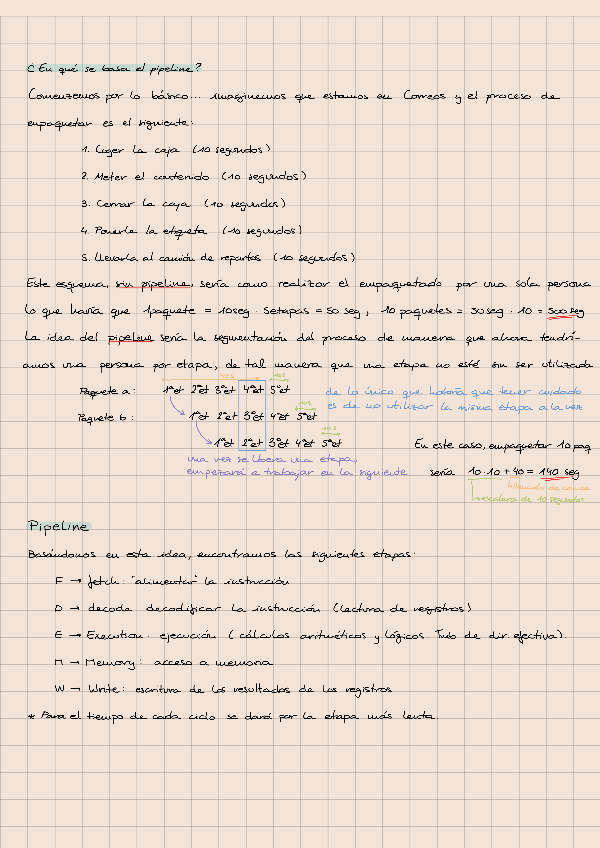 ¿En qué se basa el pipeline?
Comenzemos por lo básico... imaginemos que estamos en Correos y el proceso de
empaquetar es el siguiente:
1. Coger la caja (10 segundos)
2. Meter el contenido (10 segundos)
3. Cerrar la caja (10 segundos)
4. Ponerle la etiqueta (10 segundos)
5. Llevarla al camión de repartos (10 segundos)
Este esquema, sin pipeline, sería como realizar el empaquetado por una sola persona
lo que haría que 1paquete = 10seg · 5etapas = 50 seg, 10 paquetes = 50seg · 10 = 500 seg
La idea del pipeline sería la segmentación del proceso de manera que ahora tendrí-
amos una persona por etapa, de tal manera que una etapa no esté sin ser utilizada
40s 10s
Paquete a: 1ªet 2ªet 3ªet 4ªet 5ªet
de lo único que habría que tener cuidado
es de no utilizar la misma etapa a la vez
10s
Paquete b: 1ªet 2ªet 3ªet 4ªet 5ªet
10s
1ªet 2ªet 3ªet 4ªet 5ªet
En este caso, empaquetar 10 paq
una vez se libera una etapa,
empezará a trabajar en la siguiente
sería 10·10 + 40 = 140 seg
de
escalera de 10 segundos
Pipeline
Basándonos en esta idea, encontramos las siguientes etapas:
F → fetch: "alimentar" la instrucción
D → decode: decodificar la instrucción (lectura de registros)
E → Execution: ejecución (cálculos aritméticos y lógicos de dir. efectiva).
M → Memory: acceso a memoria
W → Write: escritura de los resultados de los registros
* Para el tiempo de cada ciclo se dará por la etapa más lenta.